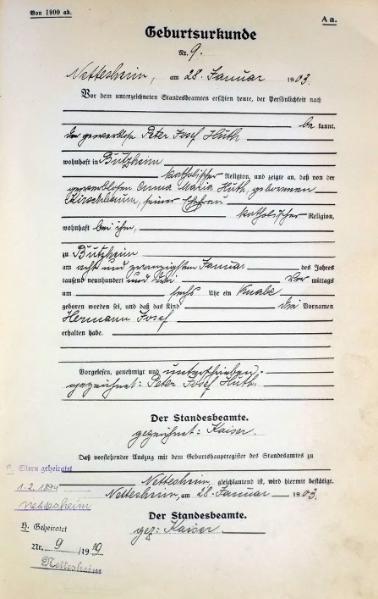 Von 1900 ab.
A a.
Geburtsurkunde
Nr. 9.
Nettesheim, am 28. Januar 1903.
Vor dem unterzeichneten Standesbeamten erschien heute, der Persönlichkeit nach
be kannt,
der Peter Josef Hüth
wohnhaft in Butzheim
katholischer Religion, und zeigte an, daß von der
Anna Maria Hüth, geborenen
Kirschbaum, seiner Ehefrau
katholischer Religion,
wohnhaft bei ihm,
zu Butzheim
am acht und zwanzigsten Januar des Jahres
tausend neunhundert und drei Vor mittags
um sechs Uhr ein Knabe
geboren worden sei, und daß das Kind die Vornamen
Hermann Josef
erhalten habe.
Vorgelesen, genehmigt und unterschrieben:
gezeichnet: Peter Josef Hüth.
Der Standesbeamte.
gezeichnet: Kaiser.
Daß vorstehender Auszug mit dem Geburtshauptregister des Standesamtes zu
Nettesheim gleichlautend ist, wird hiermit bestätigt.
Nettesheim, am 28. Januar 1903.
Der Standesbeamte.
gez: Kaiser
Eltern geheiratet
1.2.1894
Nettesheim
Geheiratet
Nr. 9 / 19
Nettesheim